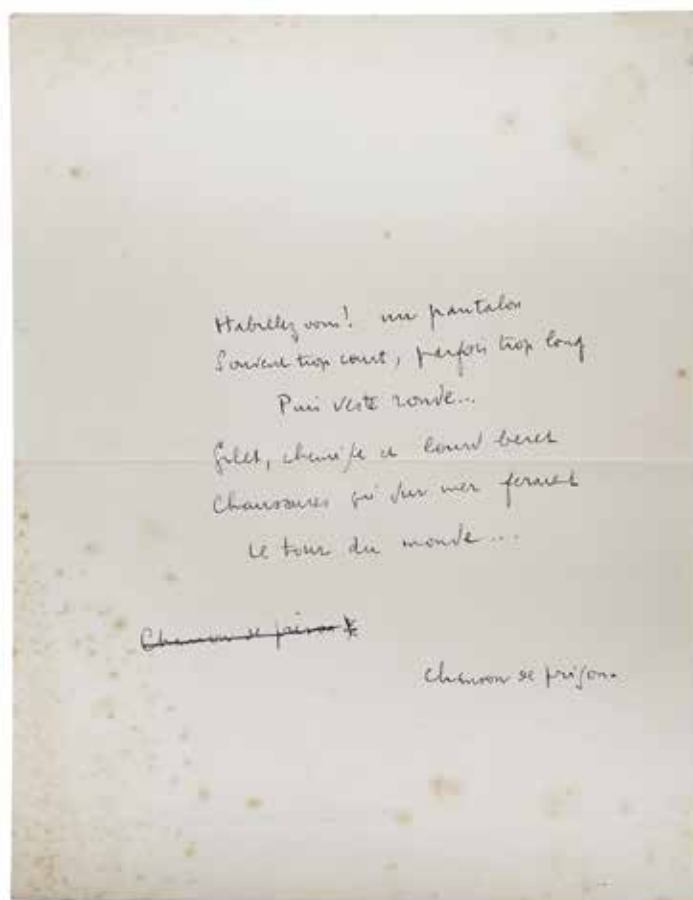 Habillez vous! un pantalon
Souvent trop court, parfois trop long
Puis veste ronde...
Gilet, chemise et lourd beret
Chaussures qui sur mer feraient
Le tour du monde...
Chanson de
Chanson de prison.